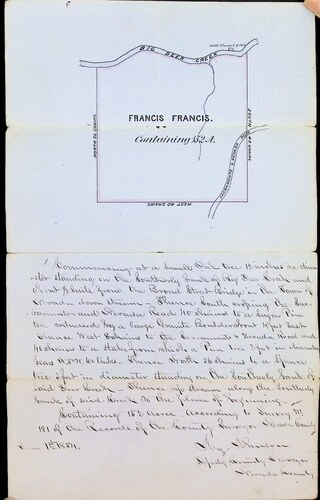 BIG DEER CREEK
FRANCIS FRANCIS.
Containing 152 A.
NORTH 36 CHAINS
SOUTH 40 CHAINS
WEST 40 CHAINS
Commencing at a small Oak tree 12 inches in diam-
eter standing on the Southerly bank of Big Deer Creek and
about ½ mile from the Broad Street Bridge in the Town of
Nevada down stream - Thence South crossing the Sac-
ramento and Nevada Road 40 chains to a Sugar Pine
tree enclosed by a large Granite Boulder about 10 feet East
Thence West crossing the Sacramento & Nevada Road and
40 chains to a stake from which a Pine 2 feet in diameter
bears N. W. 60 links. Thence North 36 chains to a Spruce
tree 2 feet in diameter standing on the Southerly bank of
said Deer Creek - Thence up stream along the Southerly
bank of said Creek to the place of beginning.
Containing 152 Acres. According to Survey No
181 of the Records of the County Surveyor Nevada County
1854.
Deputy County Surveyor
Nevada County